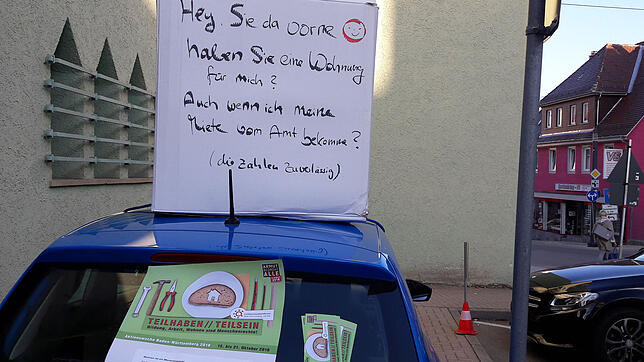 Hey. Sie da vorne
haben Sie eine Wohnung
für mich?
Auch wenn ich meine
Miete vom Amt bekomme?
(die zahlen zuverlässig)
ARMUT
ALLE
TEILHABEN // TEILSEIN
Bildung, Arbeit, Wohnen und Menschenrechte!
Aktionswoche Baden-Württemberg 2018
15. bis 21. Oktober 2018